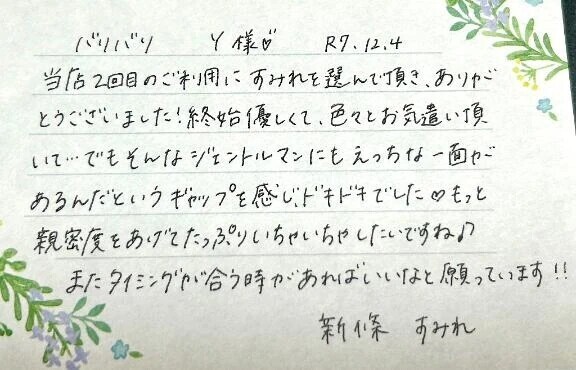 バリバリ Y様♡ R7.12.4
当店2回目のご利用にすみれを選んで頂き、ありが
とうございました!終始優しくて、色々とお気遣い頂
いて…でもそんなジェントルマンにもえっちな一面が
あるんだというギャップを感じ、ドキドキでした♡もっと
親密度をあげてたっぷりいちゃいちゃしたいですね♪
またタイミングが合う時があればいいなと願っています!!
新條 すみれ